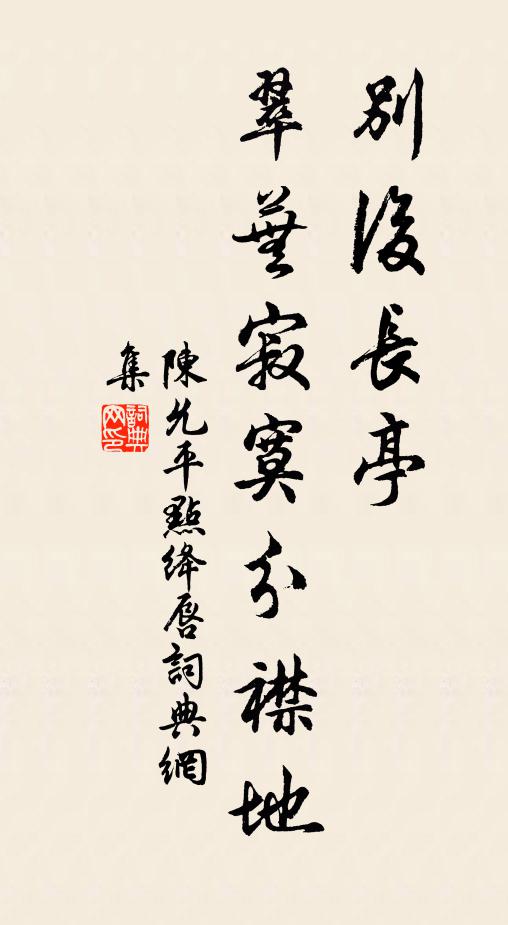 別後長亭
翠華寂寞分襟地
陳允平點絳唇詞典網
集
詞典
网印